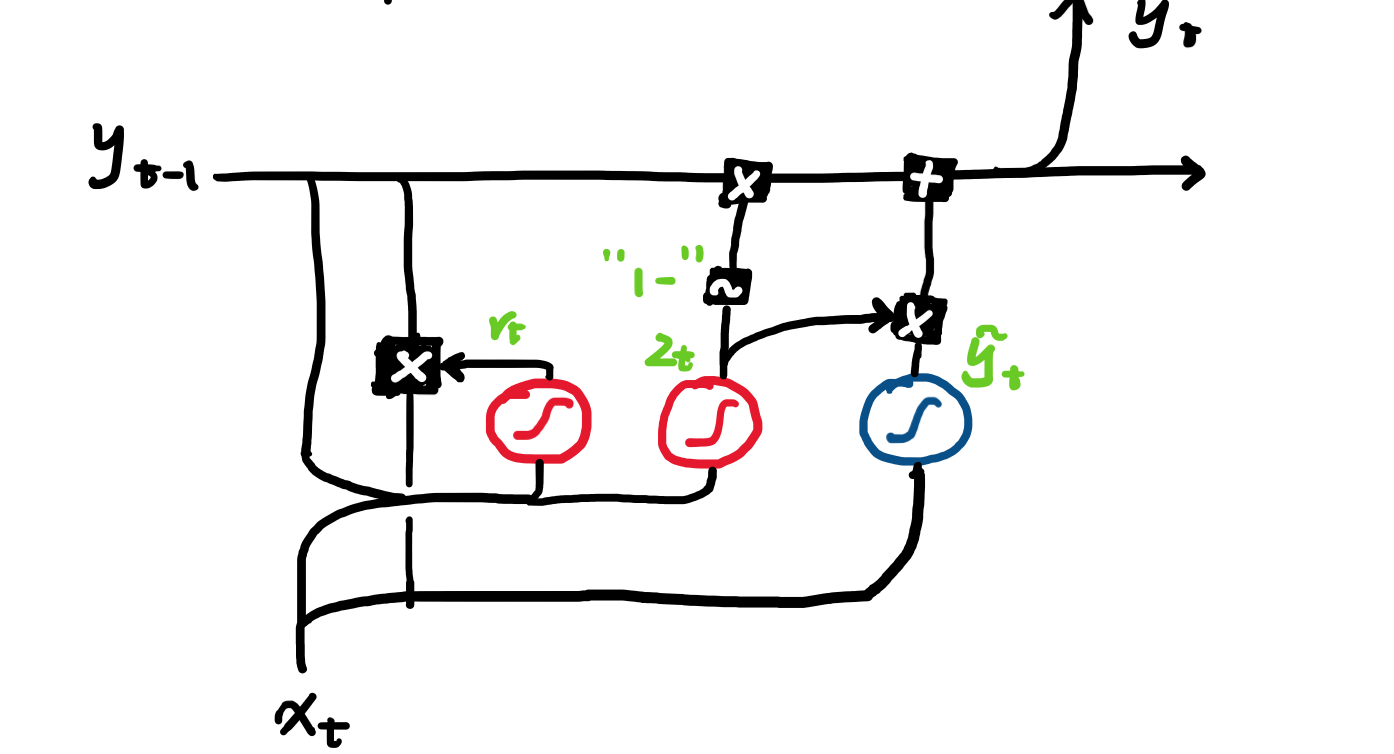 yₜ
yₜ₋₁
x
+
"1-"
~
x
rₜ
zₜ
ỹₜ
x
xₜ